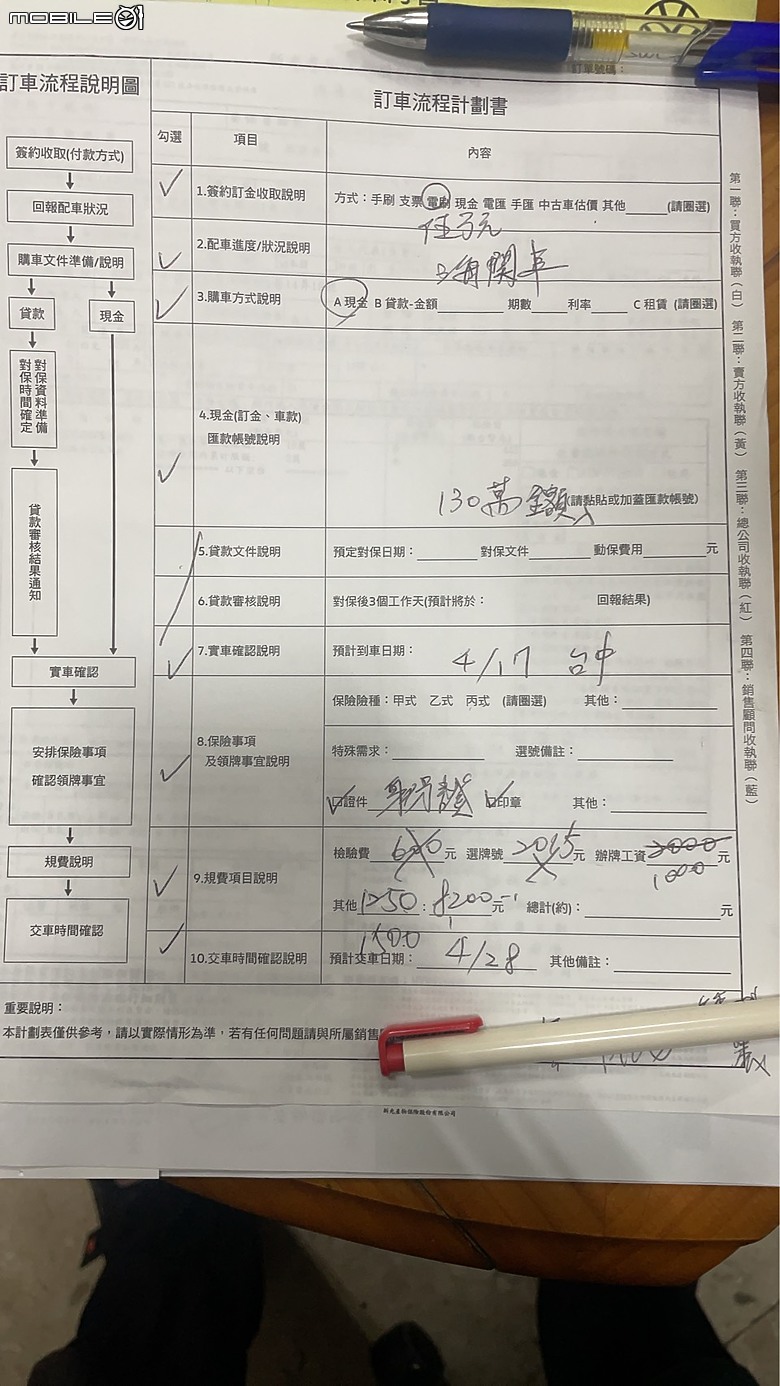 MOBILE01
訂單號碼：
訂車流程說明圖
簽約收取(付款方式)
回報配車狀況
購車文件準備/說明
貸款
現金
對保資料準備
對保時間確定
貸款審核結果通知
實車確認
安排保險事項
確認領牌事宜
規費說明
交車時間確認
訂車流程計劃書
勾選 項目 內容
1.簽約訂金收取說明 方式：手刷 支票 電刷 現金 電匯 手匯 中古車估價 其他 (請圈選)
伍万元
2.配車進度/狀況說明
海關車
3.購車方式說明 A 現金 B 貸款-金額 期數 利率 C 租賃 (請圈選)
4.現金(訂金、車款)
匯款帳號說明
130萬 全額 (請黏貼或加蓋匯款帳號)
5.貸款文件說明 預定對保日期： 對保文件 動保費用 元
6.貸款審核說明 對保後3個工作天(預計將於： 回報結果)
7.實車確認說明 預計到車日期： 4/17 台中
8.保險事項
及領牌事宜說明
保險險種：甲式 乙式 丙式 (請圈選) 其他：
特殊需求： 選號備註：
口證件 身份證 口印章 其他：
9.規費項目說明
檢驗費 600 元 選牌號 2015 元 辦牌工資 3000 元
1000
其他 1250 : 8200 元 總計(約)： 元
1500
10.交車時間確認說明 預計交車日期： 4/28 其他備註：
重要說明：
本計劃表僅供參考，請以實際情形為準，若有任何問題請與所屬銷售
新光產物保險股份有限公司
第一聯：買方收執聯（白） 第二聯：賣方收執聯（黃） 第三聯：總公司收執聯（紅） 第四聯：銷售顧問收執聯（藍）